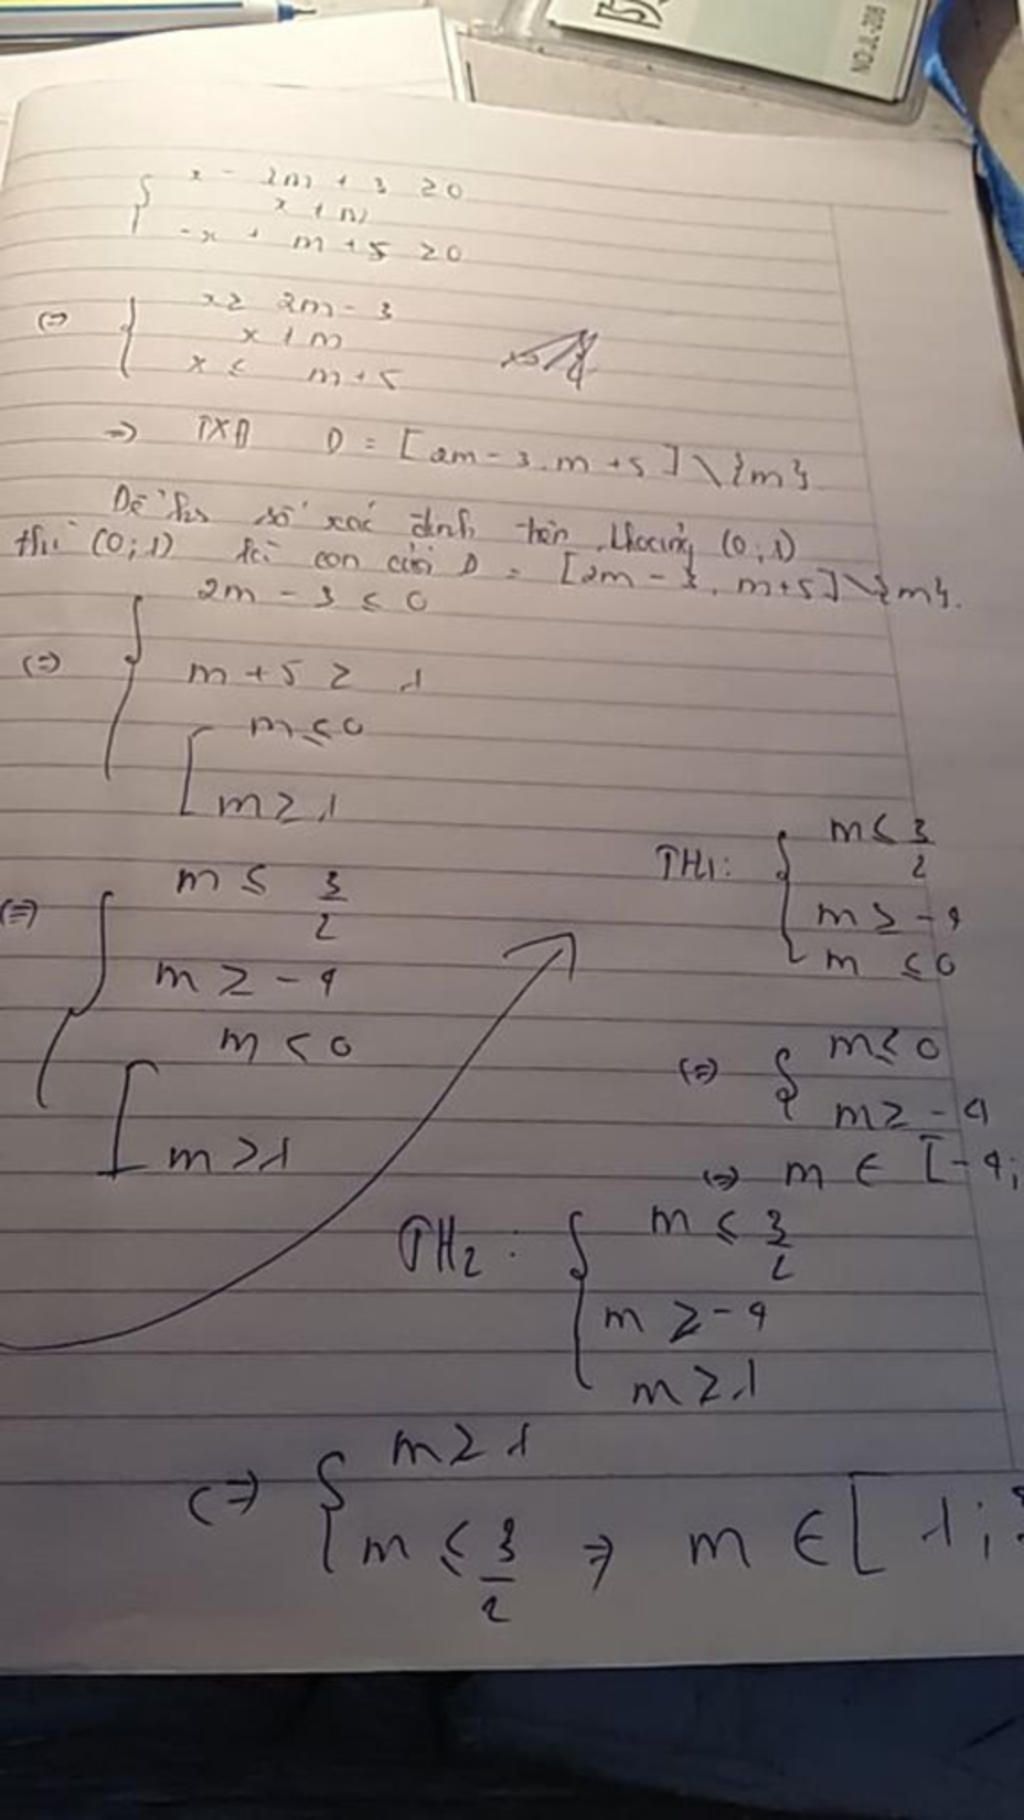 NO.JL-208
x - 2m + 3 ≥ 0
x ≠ m
-x + m + 5 ≥ 0
(=) x ≥ 2m - 3
x ≠ m
x ≤ m + 5
=> TXĐ D = [2m - 3, m + 5] \ {m}.
Để hs số xác định trên khoảng (0;1)
thì (0;1) là con của D = [2m - 3, m+5] \ {m}.
2m - 3 ≤ 0
(=) m + 5 ≥ 1
m ≤ 0
m ≥ 1
(=) m ≤ 3/2
m ≥ -4
m < 0
m > 1
TH1: m ≤ 3/2
m ≥ -4
m ≤ 0
(=) m ≤ 0
m ≥ -4
(=) m ∈ [-4;
TH2: m ≤ 3/2
m ≥ -4
m ≥ 1
(=) m ≥ 1
m ≤ 3/2 => m ∈ [1;